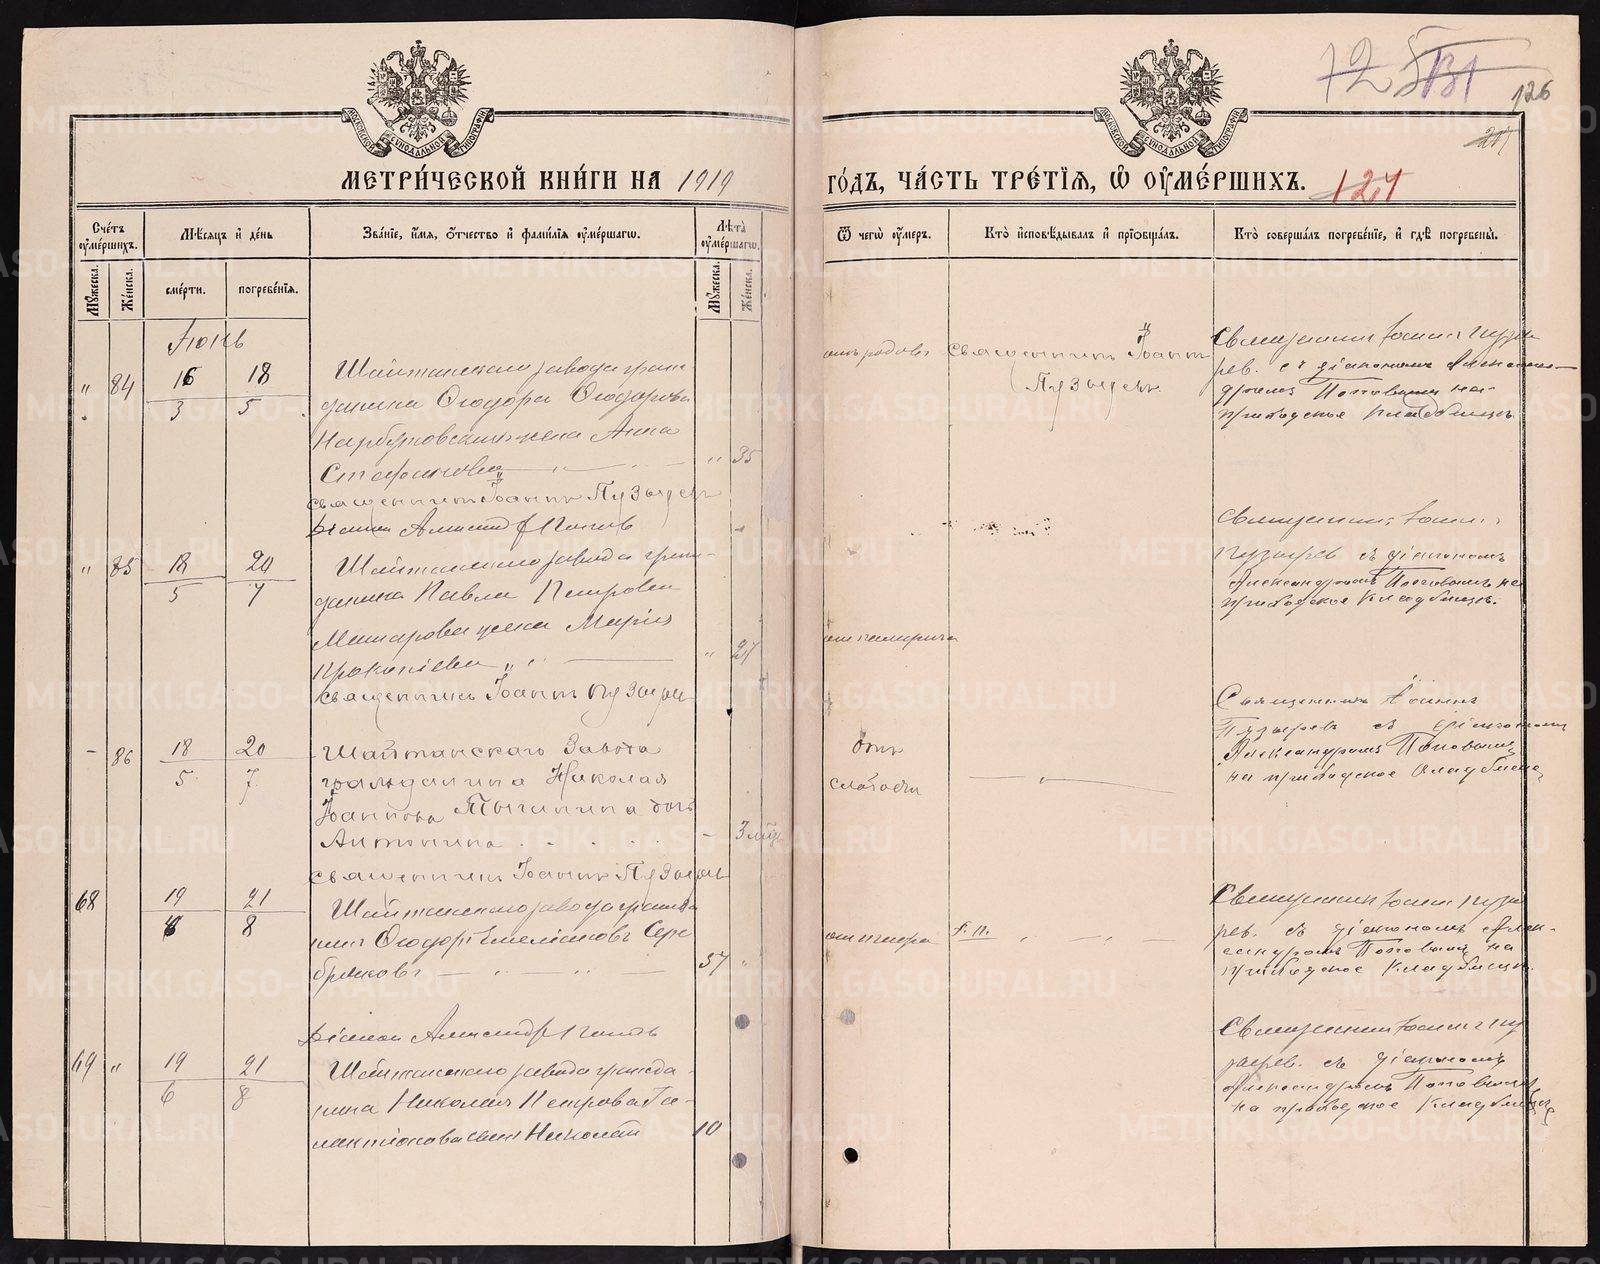 72 5 131
126
217
МЕТРИ́ЧЕСКОЙ КНИ́ГИ НА 1919
ГО́ДЪ, ЧА́СТЬ ТРЕ́ТІѦ, Ѡ ОУ҆МЕ́РШИХЪ. 127
Сче́тъ оу҆ме́ршихъ.
Мѣ́сѧцъ и҆ де́нь
Зва́нїе, и҆́мѧ, ѻ҆́тчество и҆ фамі́лїѧ оу҆ме́ршагѡ.
Лѣ́та оу҆ме́ршагѡ.
Ѿ чегѡ̀ оу҆́меръ.
Кто̀ и҆сповѣ́дывалъ и҆ прїѡбща́лъ.
Кто̀ соверша́лъ погребе́нїе, и҆ гдѣ̀ погребены̀.
Мꙋ́жеска.
Же́нска.
сме́рти.
погребе́нїѧ.
Мꙋ́жеска.
Же́нска.
Іюнь
" 84
16 18
3 5
Шайтанскаго завода граж-
данина Ѳеодора Ѳеодорова
жена Анна
Стефановна " 35
отъ родовъ
Священникъ Іоаннъ
Пузыревъ
Священникъ Іоаннъ Пузы-
ревъ съ діакономъ Алексан-
дромъ Поповымъ на
приходское кладбище.
Священникъ Іоаннъ Пузыревъ
Діаконъ Александръ Поповъ
" 85
18 20
5 7
Шайтанскаго завода граж-
данина Павла Петрова
Макарова жена Марія
Прокопіева " 27
Священникъ Іоаннъ
Пузыревъ съ діакономъ
Александромъ Поповымъ на
приходское кладбище.
Священникъ Іоаннъ Пузырев
- 86
18 20
5 7
Шайтанскаго Завода
гражданина Николая
Іоаннова дочь
Антонина - 3 мѣс
отъ
слабости
Священникъ Іоаннъ
Пузыревъ съ діакономъ
Александромъ Поповымъ
на приходское кладбище
Священникъ Іоаннъ Пузыревъ
68
19 21
6 8
Шайтанскаго завода гражда
нинъ Ѳеодоръ Емеліановъ Сере
бряковъ 57 "
Священникъ Іоаннъ Пузы
ревъ съ діакономъ Алек-
сандромъ Поповымъ на
приходское кладбище.
Діаконъ Александръ Поповъ
69 "
19 21
6 8
Шайтанскаго завода гражда-
нина Николая Петрова Га-
лактіонова сынъ Николай 10
Священникъ Іоаннъ Пу
зыревъ съ діакономъ
Александромъ Поповымъ
на приходское кладбище
METRIKI.GASO-URAL.RU